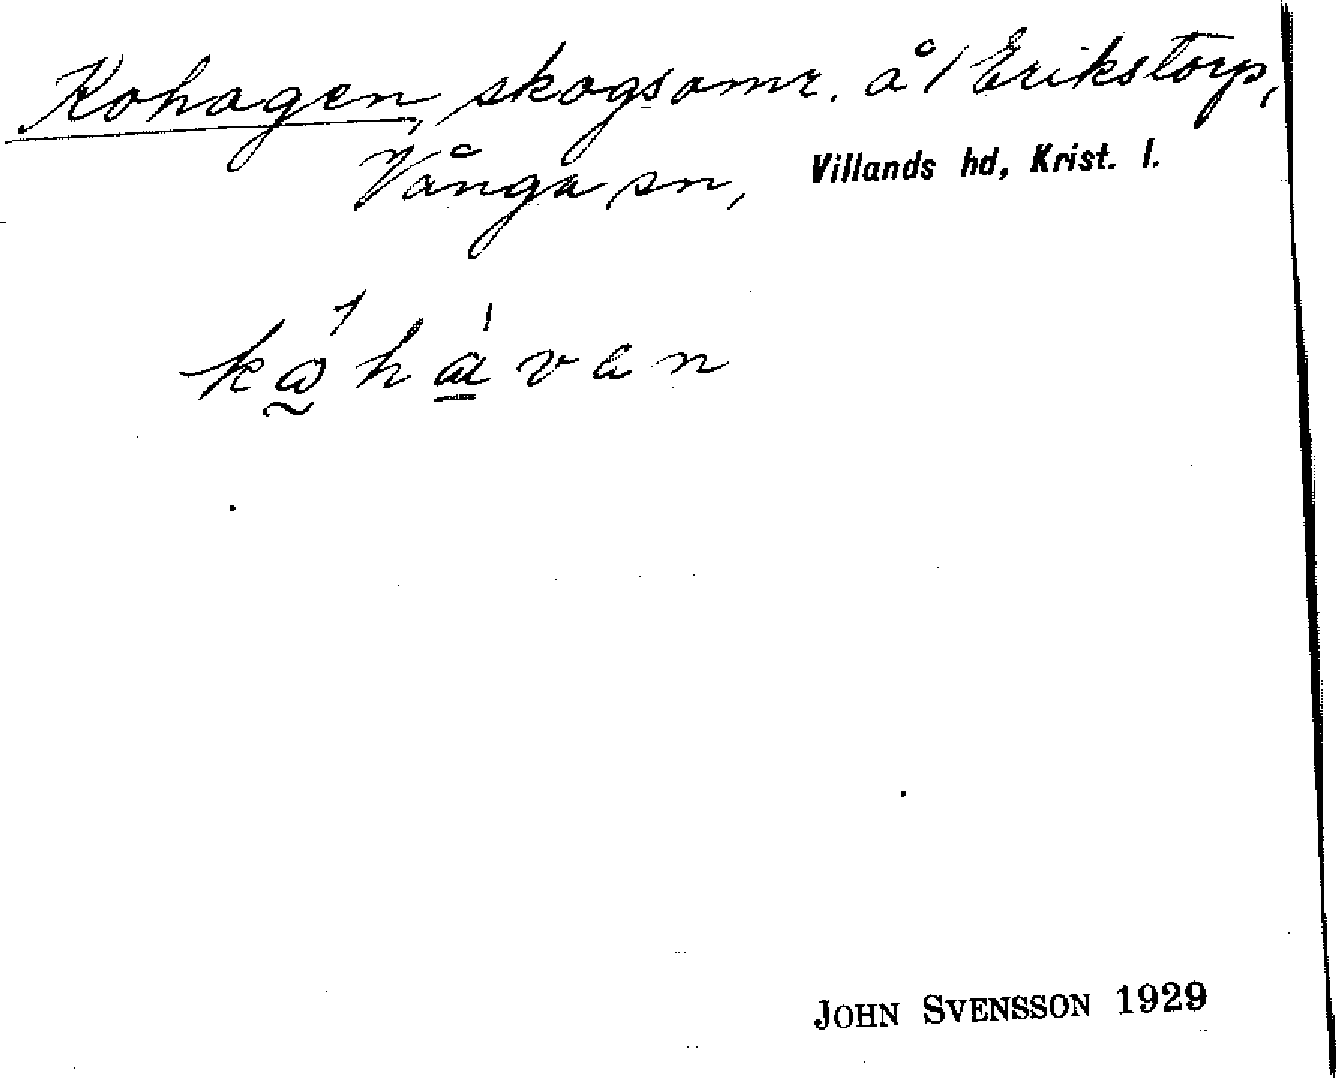 Kohagen, skogsomr. å Erikstorp,
Vånga sn, Villands hd, Krist. l.
kåhàvan
JOHN SVENSSON 1929